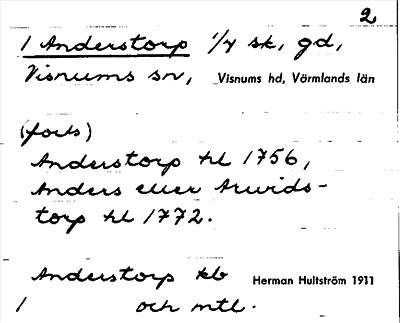 2
1 Anderstorp 1/4 sk, gd,
Visnums sn, Visnums hd, Värmlands län
(forts)
Anderstorp hl 1756,
Anders eller Arvids-
torp hl 1772.
Anderstorp kb Herman Hultström 1911
1 och mtl.